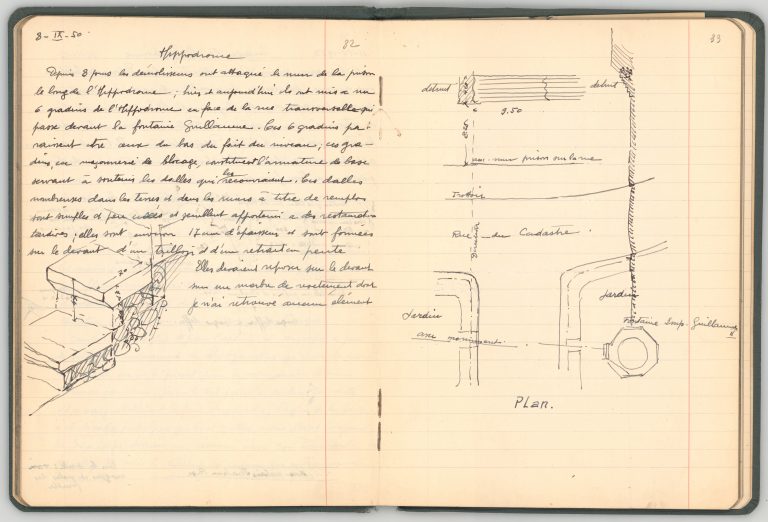 8-IX-50
82
Hippodrome
Depuis 8 jours les démolisseurs ont attaqué le mur de la prison
le long de l'Hippodrome ; hier et aujourd'hui ils ont mis a nu
6 gradins de l'Hippodrome en face de la rue transversale qui
passe devant la fontaine Guillaume. Ces 6 gradins pa-
raissent être ceux du bas du fait du niveau ; ces gra-
dins, en maçonnerie de blocage, constituent l'armature de base
servant à soutenir les dalles qui les recouvraient. Ces dalles
nombreuses dans les terres et dans les murs à titre de remplois
sont simples et
et semblent appartenir a des restaurations
tardives ; elles sont environ 17 cm d'épaisseur et sont formées
sur le devant d'un
et d'un retrait en pente
Elles devaient reposer sur le devant
sur un marbre de revetement dont
je n'ai retrouvé aucun element
33
détruit
détruit
9.50
mur prison sur la rue
Trottoir
Rue du Cadastre.
Direction
Jardin
Jardin
axe monument
Fontaine Imp. Guillaume II
PLan.